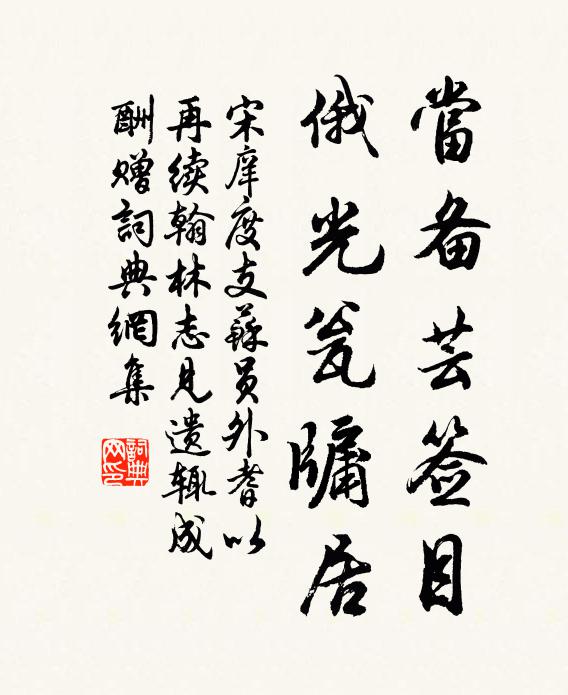 當备芸签目
俄光瓮牖居
宋庠度支蘇员外耆以
再续翰林志見遗辄成
酬赠詞典網集
詞典网印